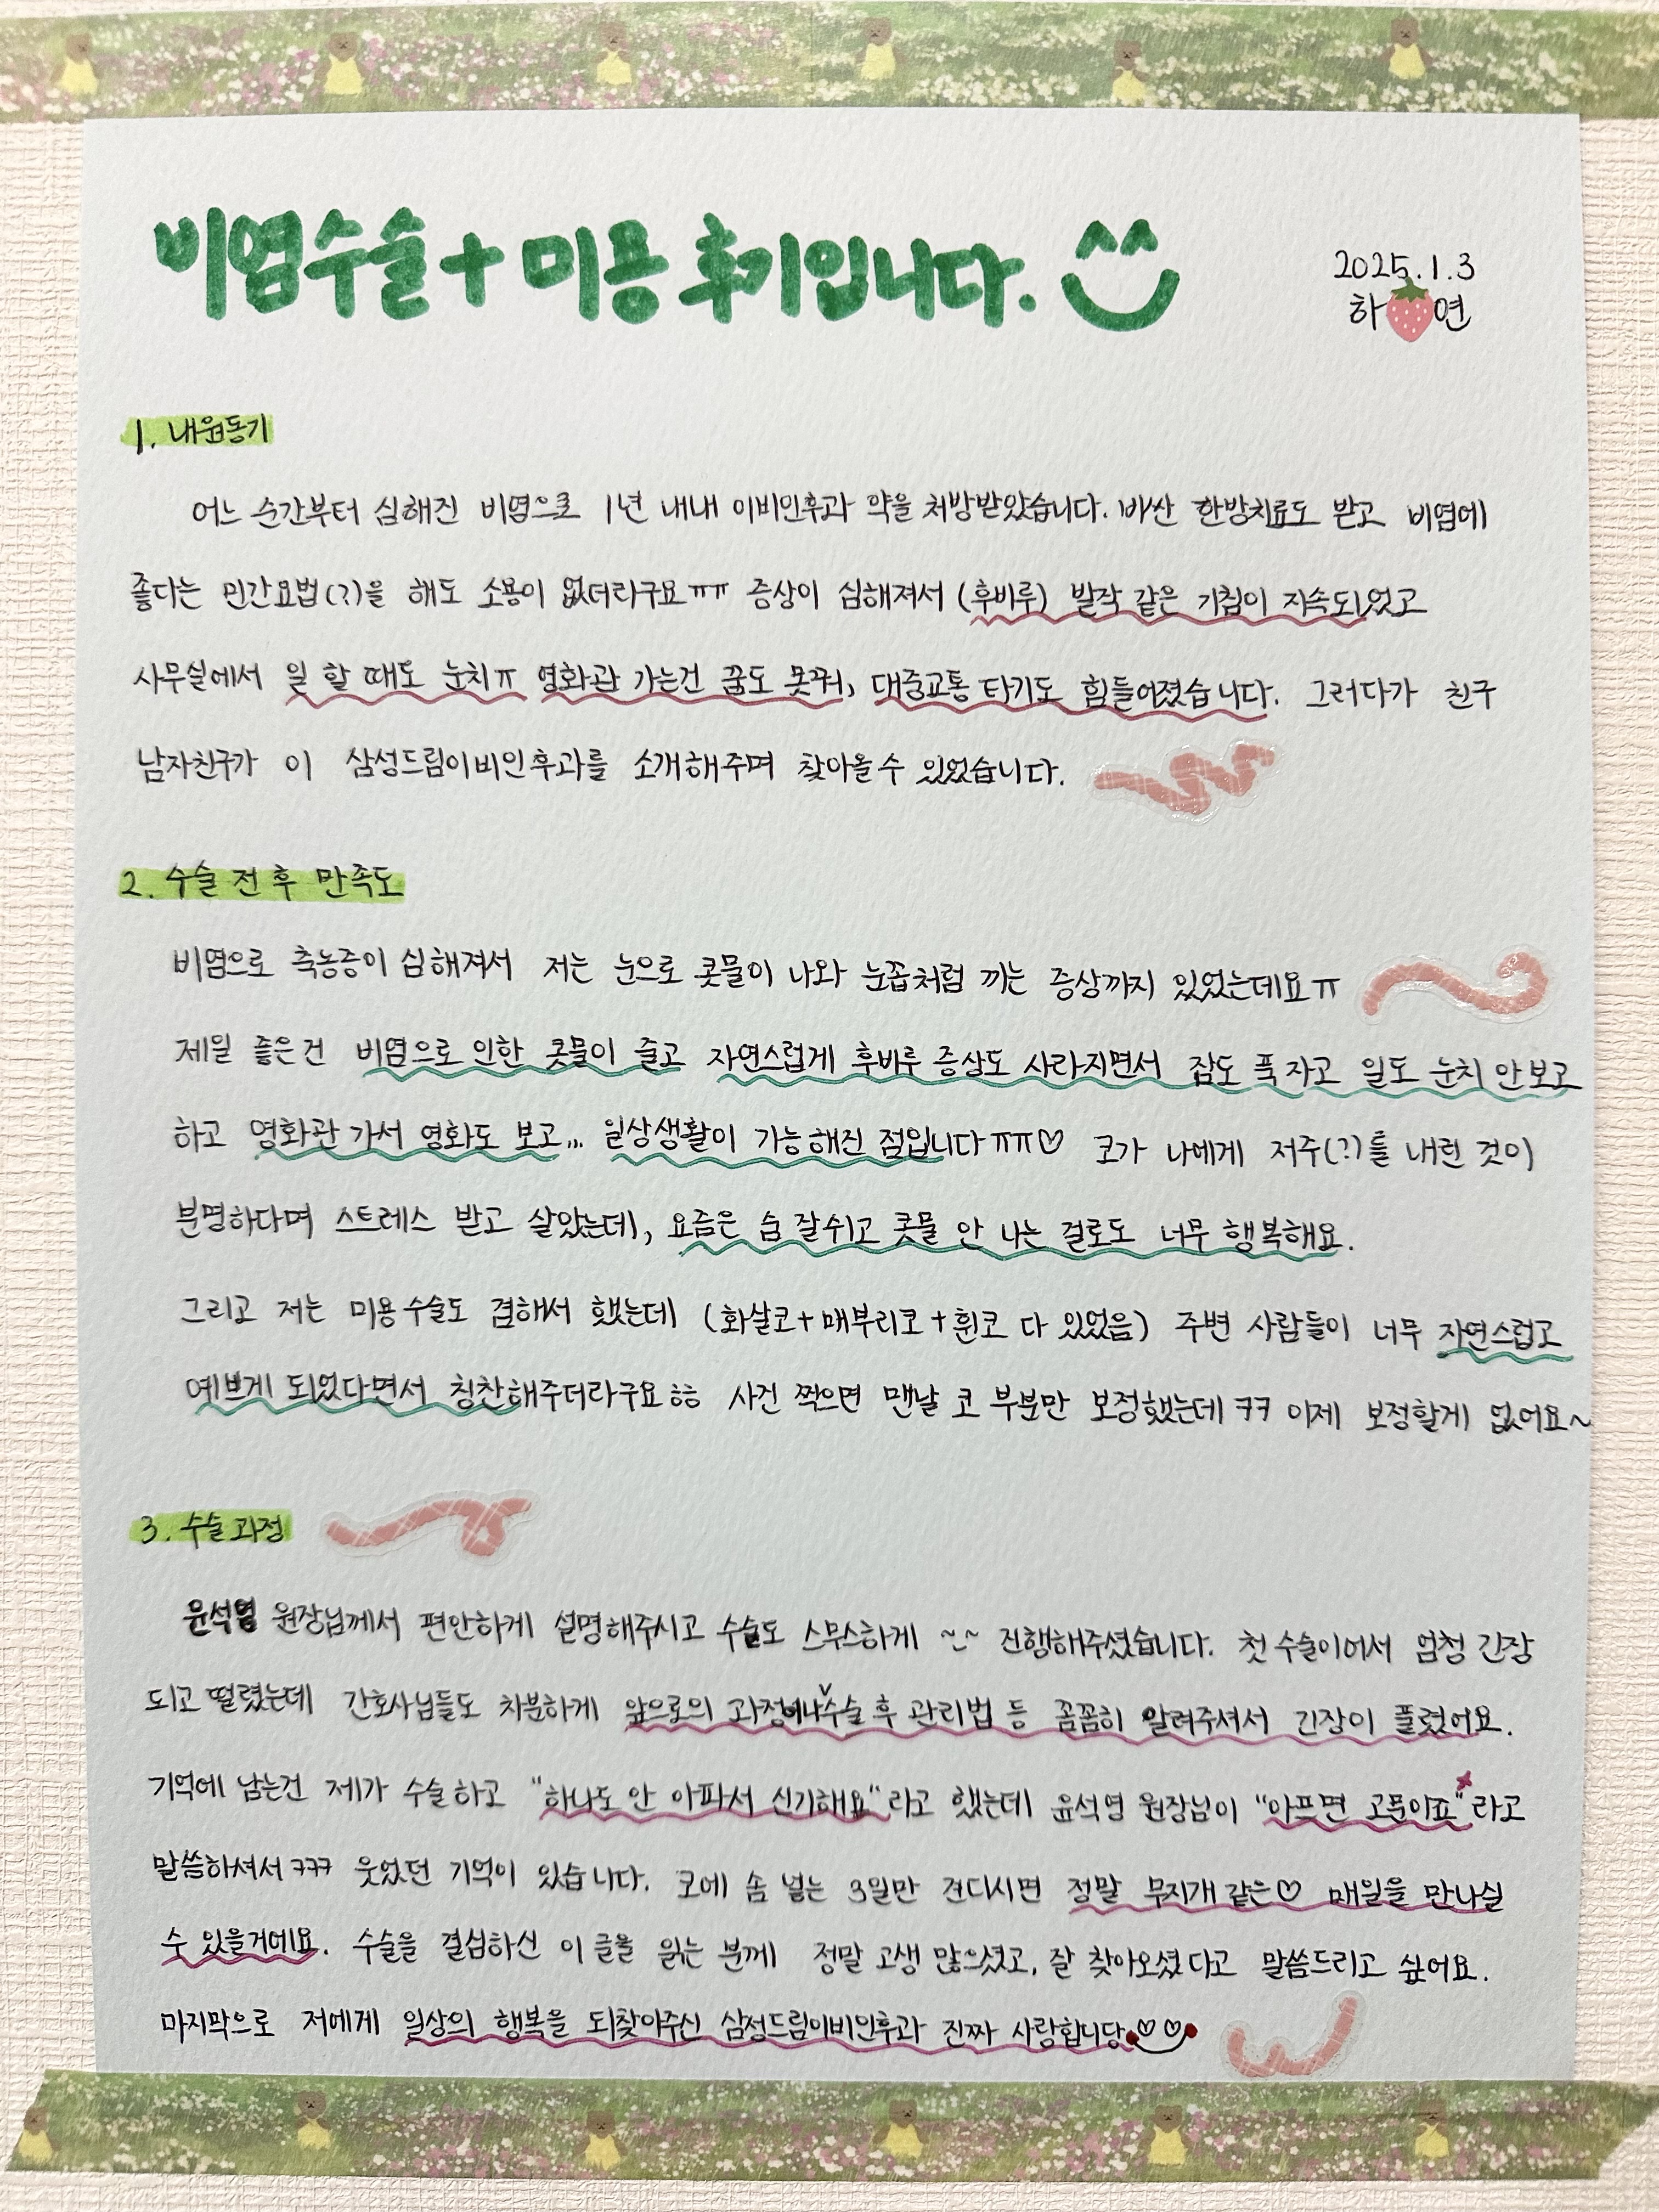 비염수술+미용 후기입니다.
2025.1.3
하연
1. 내원동기
어느 순간부터 심해진 비염으로 1년 내내 이비인후과 약을 처방받았습니다. 비싼 한방치료도 받고 비염에
좋다는 민간요법(?)을 해도 소용이 없더라구요ㅠㅠ 증상이 심해져서 (후비루) 발작 같은 기침이 지속되었고
사무실에서 일 할 때도 눈치ㅠ 영화관 가는건 꿈도 못꿔, 대중교통 타기도 힘들어졌습니다. 그러다가 친구
남자친구가 이 삼성드림이비인후과를 소개해주며 찾아올수 있었습니다.
2. 수술 전 후 만족도
비염으로 축농증이 심해져서 저는 눈으로 콧물이 나와 눈꼽처럼 끼는 증상까지 있었는데요ㅠ
제일 좋은건 비염으로 인한 콧물이 줄고 자연스럽게 후비루 증상도 사라지면서 잠도 푹 자고 일도 눈치 안보고
하고 영화관 가서 영화도 보고... 일상생활이 가능해진 점입니다ㅠㅠ♡ 코가 나에게 저주(?)를 내린 것이
분명하다며 스트레스 받고 살았는데, 요즘은 숨 잘쉬고 콧물 안 나는 걸로도 너무 행복해요.
그리고 저는 미용수술도 겸해서 했는데 (화살코+매부리코+휜코 다 있었음) 주변 사람들이 너무 자연스럽고
예쁘게 되었다면서 칭찬해주더라구요ㅎㅎ 사진 찍으면 맨날 코 부분만 보정했는데 ㅋㅋ 이제 보정할게 없어요~
3. 수술과정
윤석영 원장님께서 편안하게 설명해주시고 수술도 스무스하게 ~.~ 진행해주셨습니다. 첫 수술이어서 엄청 긴장
되고 떨렸는데 간호사님들도 차분하게 앞으로의 과정이나 수술 후 관리법 등 꼼꼼히 알려주셔서 긴장이 풀렸어요.
기억에 남는건 제가 수술하고 "하나도 안 아파서 신기해요"라고 했는데 윤석영 원장님이 "아프면 고문이죠"라고
말씀하셔서 ㅋㅋㅋ 웃었던 기억이 있습니다. 코에 솜 넣는 3일만 견디시면 정말 무지개 같은♡ 매일을 만나실
수 있을거에요. 수술을 결심하신 이 글을 읽는 분께 정말 고생 많으셨고, 잘 찾아오셨다고 말씀드리고 싶어요.
마지막으로 저에게 일상의 행복을 되찾아주신 삼성드림이비인후과 진짜 사랑합니당♡♡